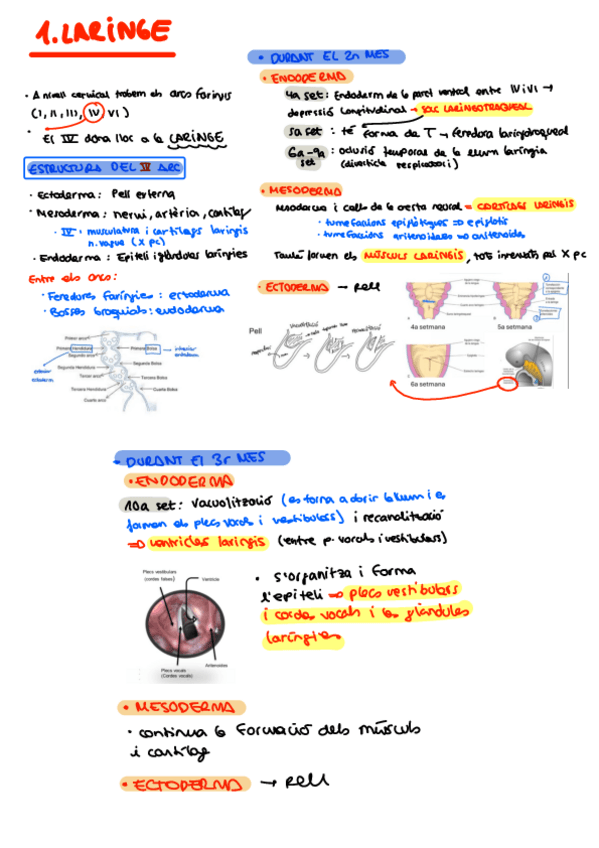 1. LARINGE
• A nivell cervical trobem els arcs faringis
(I, II, III, IV VI)
• El IV dona lloc a la LARINGE
ESTRUCTURA DEL IV ARC
• Ectoderma: Pell externa
• Mesoderma: nervi, artèria, cartílag
• IV: musculatura i cartílags laringis
n. vague (X pc)
• Endoderma: Epiteli i glàndules laríngies
Entre els arcs:
• Fenedures faríngies: ectoderma
• Bosses branquials: endoderma
Primer arc
Primera Hendidura
Primera Bolsa
interior
endoderm
Segundo arco
exterior
ectoderm
Segunda Hendidura
Segunda Bolsa
Tercer arco
Tercera Bolsa
Tercera Hendidura
Cuarta Bolsa
Cuarto arco
• DURANT EL 2n MES
• ENDODERMO
4a set: Endoderm de la paret ventral entre IV i VI →
depressió longitudinal → SAC LARINGOTRAQUEAL
5a set: té forma de T → fenedura laringotraqueal
6a-9a set: oclusió temporal de la llum laríngia
(diverticle respiratori)
• MESODERMO
Mesoderma i cells de la cresta neural = CARTÍLAGS LARINGIS
• tumefaccions epiglòtiques => epiglotis
• tumefaccions aritenoidees => aritenoides
També formen els MÚSCULS LARINGIS, tots innervats pel X pc
• ECTODERMO → pell
Pell
4a setmana
5a setmana
6a setmana
• DURANT El 3r MES
• ENDODERMA
10a set: vacuolització (es torna a obrir la llum i es
formen els plecs vocals i vestibulars) i recanalització
=> ventricles laringis (entre p. vocals i vestibulars)
Plecs vestibulars
(cordes falses)
Ventricle
Plecs vocals
(Cordes vocals)
Aritenoides
• s'organitza i forma
l'epiteli => plecs vestibulars
i cordes vocals i les glàndules
laríngies
• MESODERMA
• continua la formació dels músculs
i cartílag
• ECTODERMA → pell